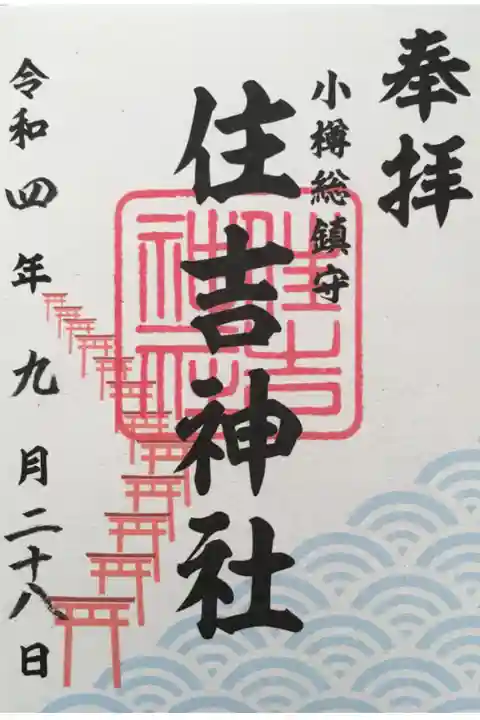 奉拝
小樽総鎮守
住吉神社
住吉神社
令和四年九月二十八日